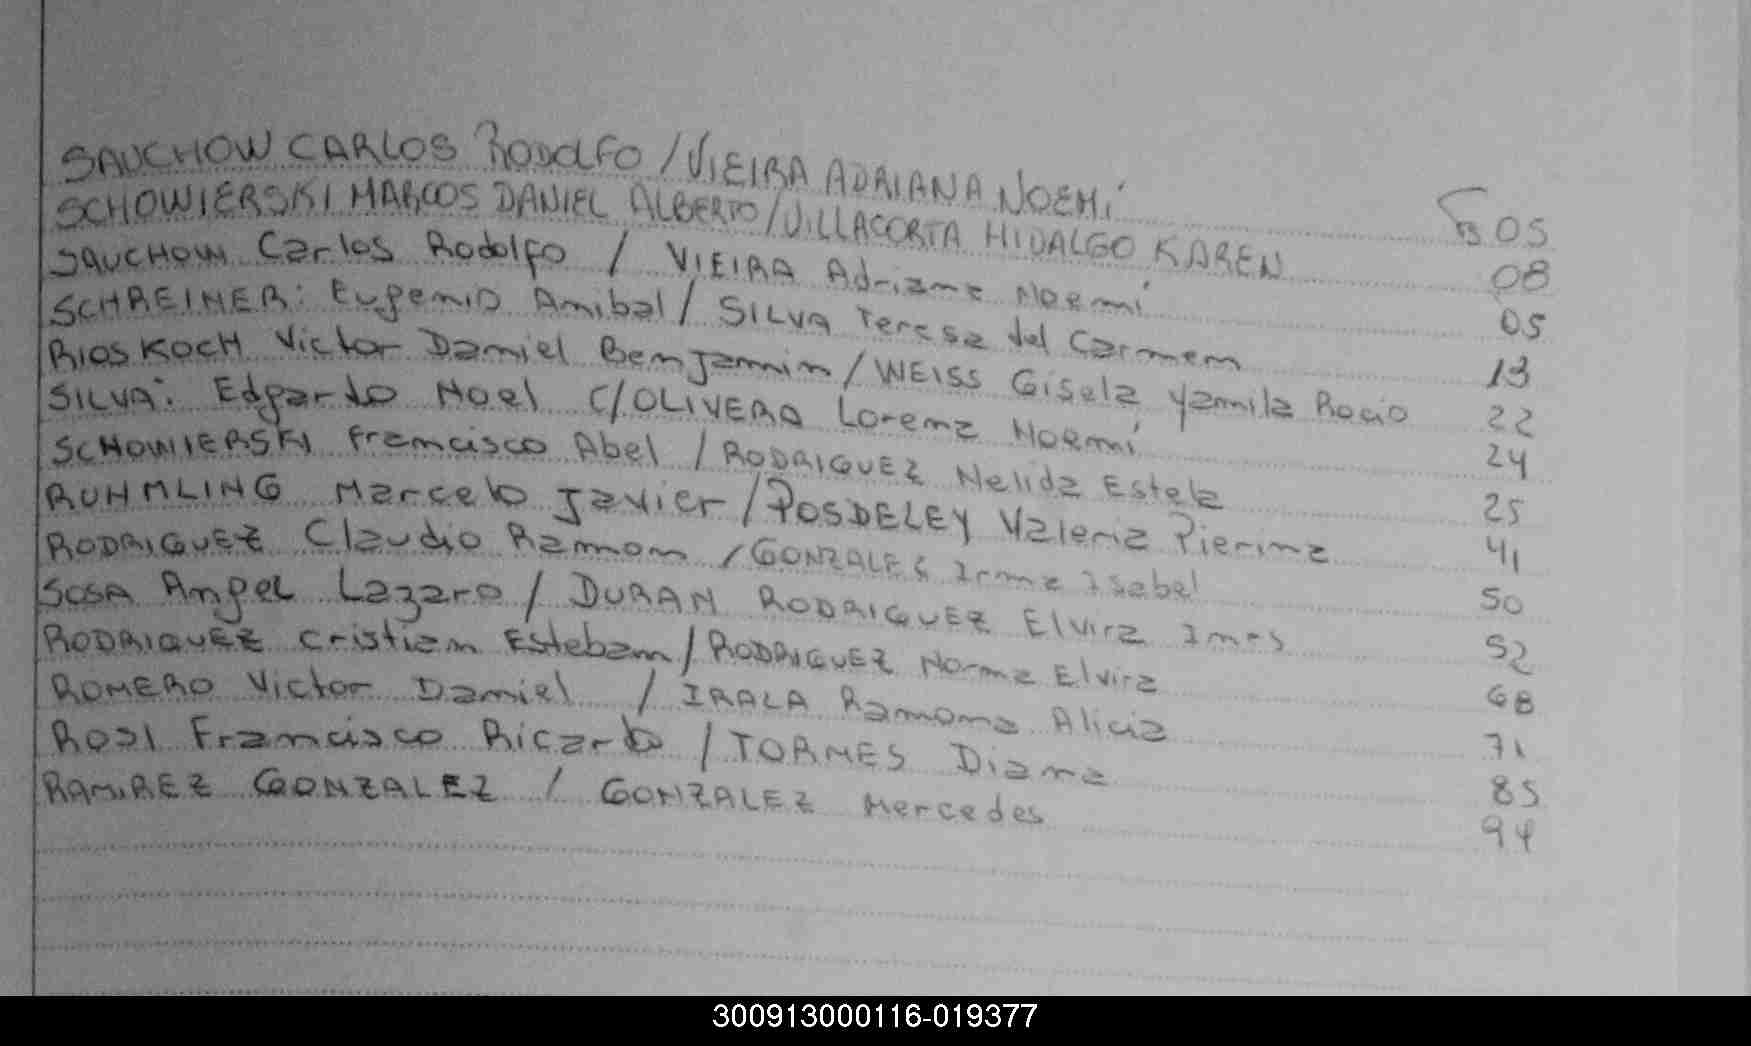 SAUCHOW CARLOS RODOLFO / VIEIRA ADRIANA NOEMÍ 05
SCHOWIERSKI MARCOS DANIEL ALBERTO / VILLACORTA HIDALGO KAREN 08
SAUCHOW Carlos Rodolfo / VIEIRA Adriana Noemí 05
SCHREINER: Eugenio Anibal / SILVA Teresa del Carmen 13
RIOS KOCH Victor Daniel Benjamin / WEISS Gisela Yamila Rocio 22
SILVA: Edgardo Noel C/ OLIVERA Lorena Noemí 24
SCHOWIERSKI Francisco Abel / RODRIGUEZ Nelida Estela 25
RUHMLING Marcelo Javier / POSDELEY Valeria Pierina 41
RODRIGUEZ Claudio Ramon / GONZALES Irma Isabel 50
SOSA Angel Lazaro / DURAN RODRIGUEZ Elvira Ines 52
RODRIGUEZ Cristian Esteban / RODRIGUEZ Norma Elvira 68
ROMERO Victor Daniel / IRALA Ramona Alicia 71
Francisco Ricardo / TORMES Diana 85
RAMIREZ GONZALEZ / GONZALEZ Mercedes 94
300913000116-019377